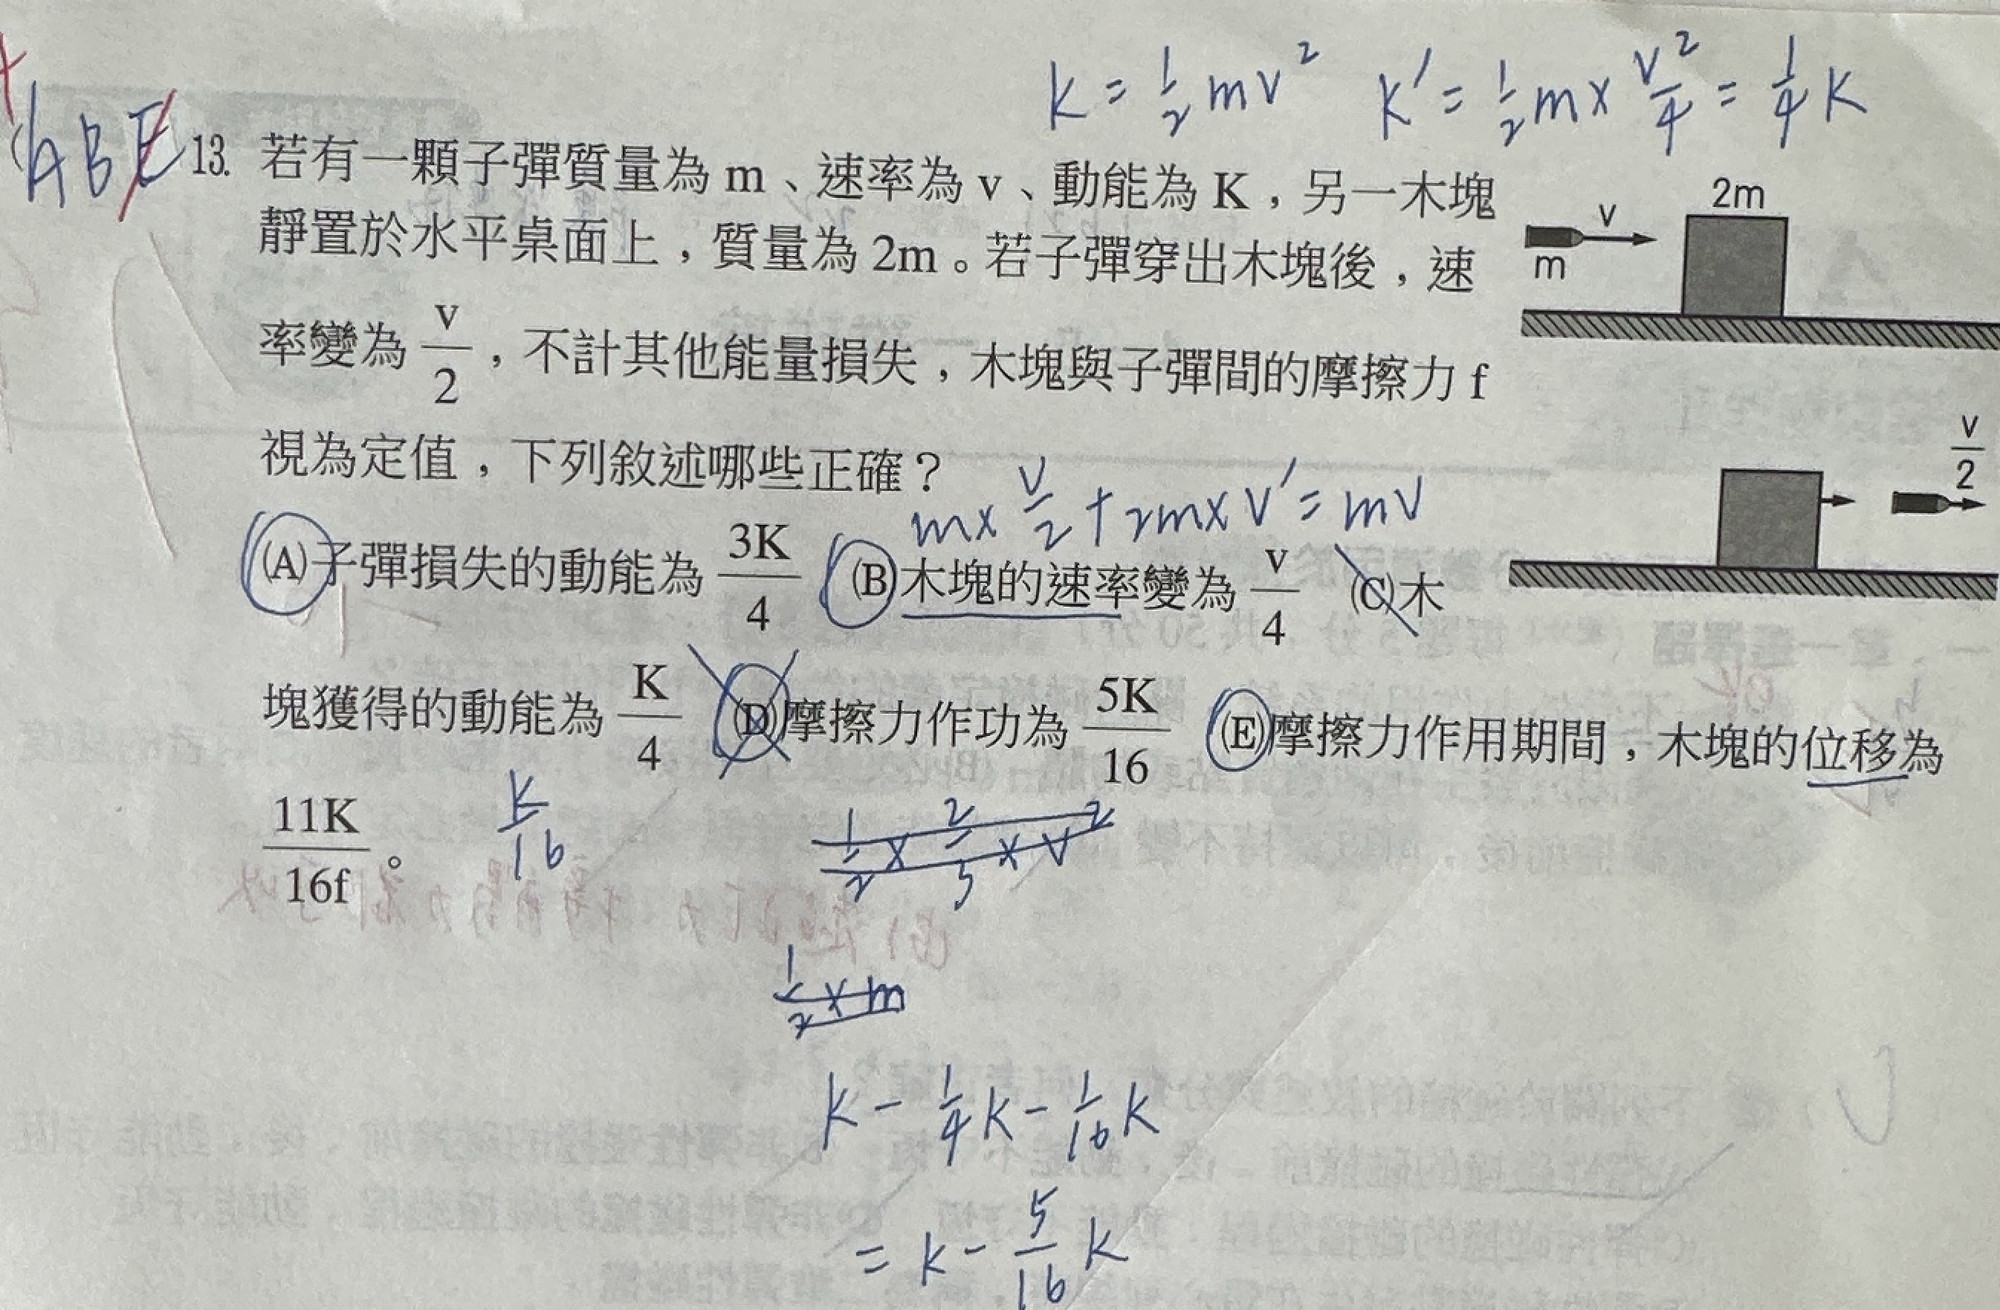 K = 1/2 mv² K' = 1/2 m x v²/4 = 1/4 K
ABE
13. 若有一顆子彈質量為 m、速率為 v、動能為 K，另一木塊
靜置於水平桌面上，質量為 2m。若子彈穿出木塊後，速
率變為 v/2，不計其他能量損失，木塊與子彈間的摩擦力 f
視為定值，下列敘述哪些正確？
m x v/2 + 2m x v' = mv
(A)子彈損失的動能為 3K/4 (B)木塊的速率變為 v/4 (C)木
塊獲得的動能為 K/4 (D)摩擦力作功為 5K/16 (E)摩擦力作用期間，木塊的位移為
11K/16f。
K/16
1/2 x m
K - 1/4 K - 1/16 K
= K - 5/16 K
2m
v
m
v/2